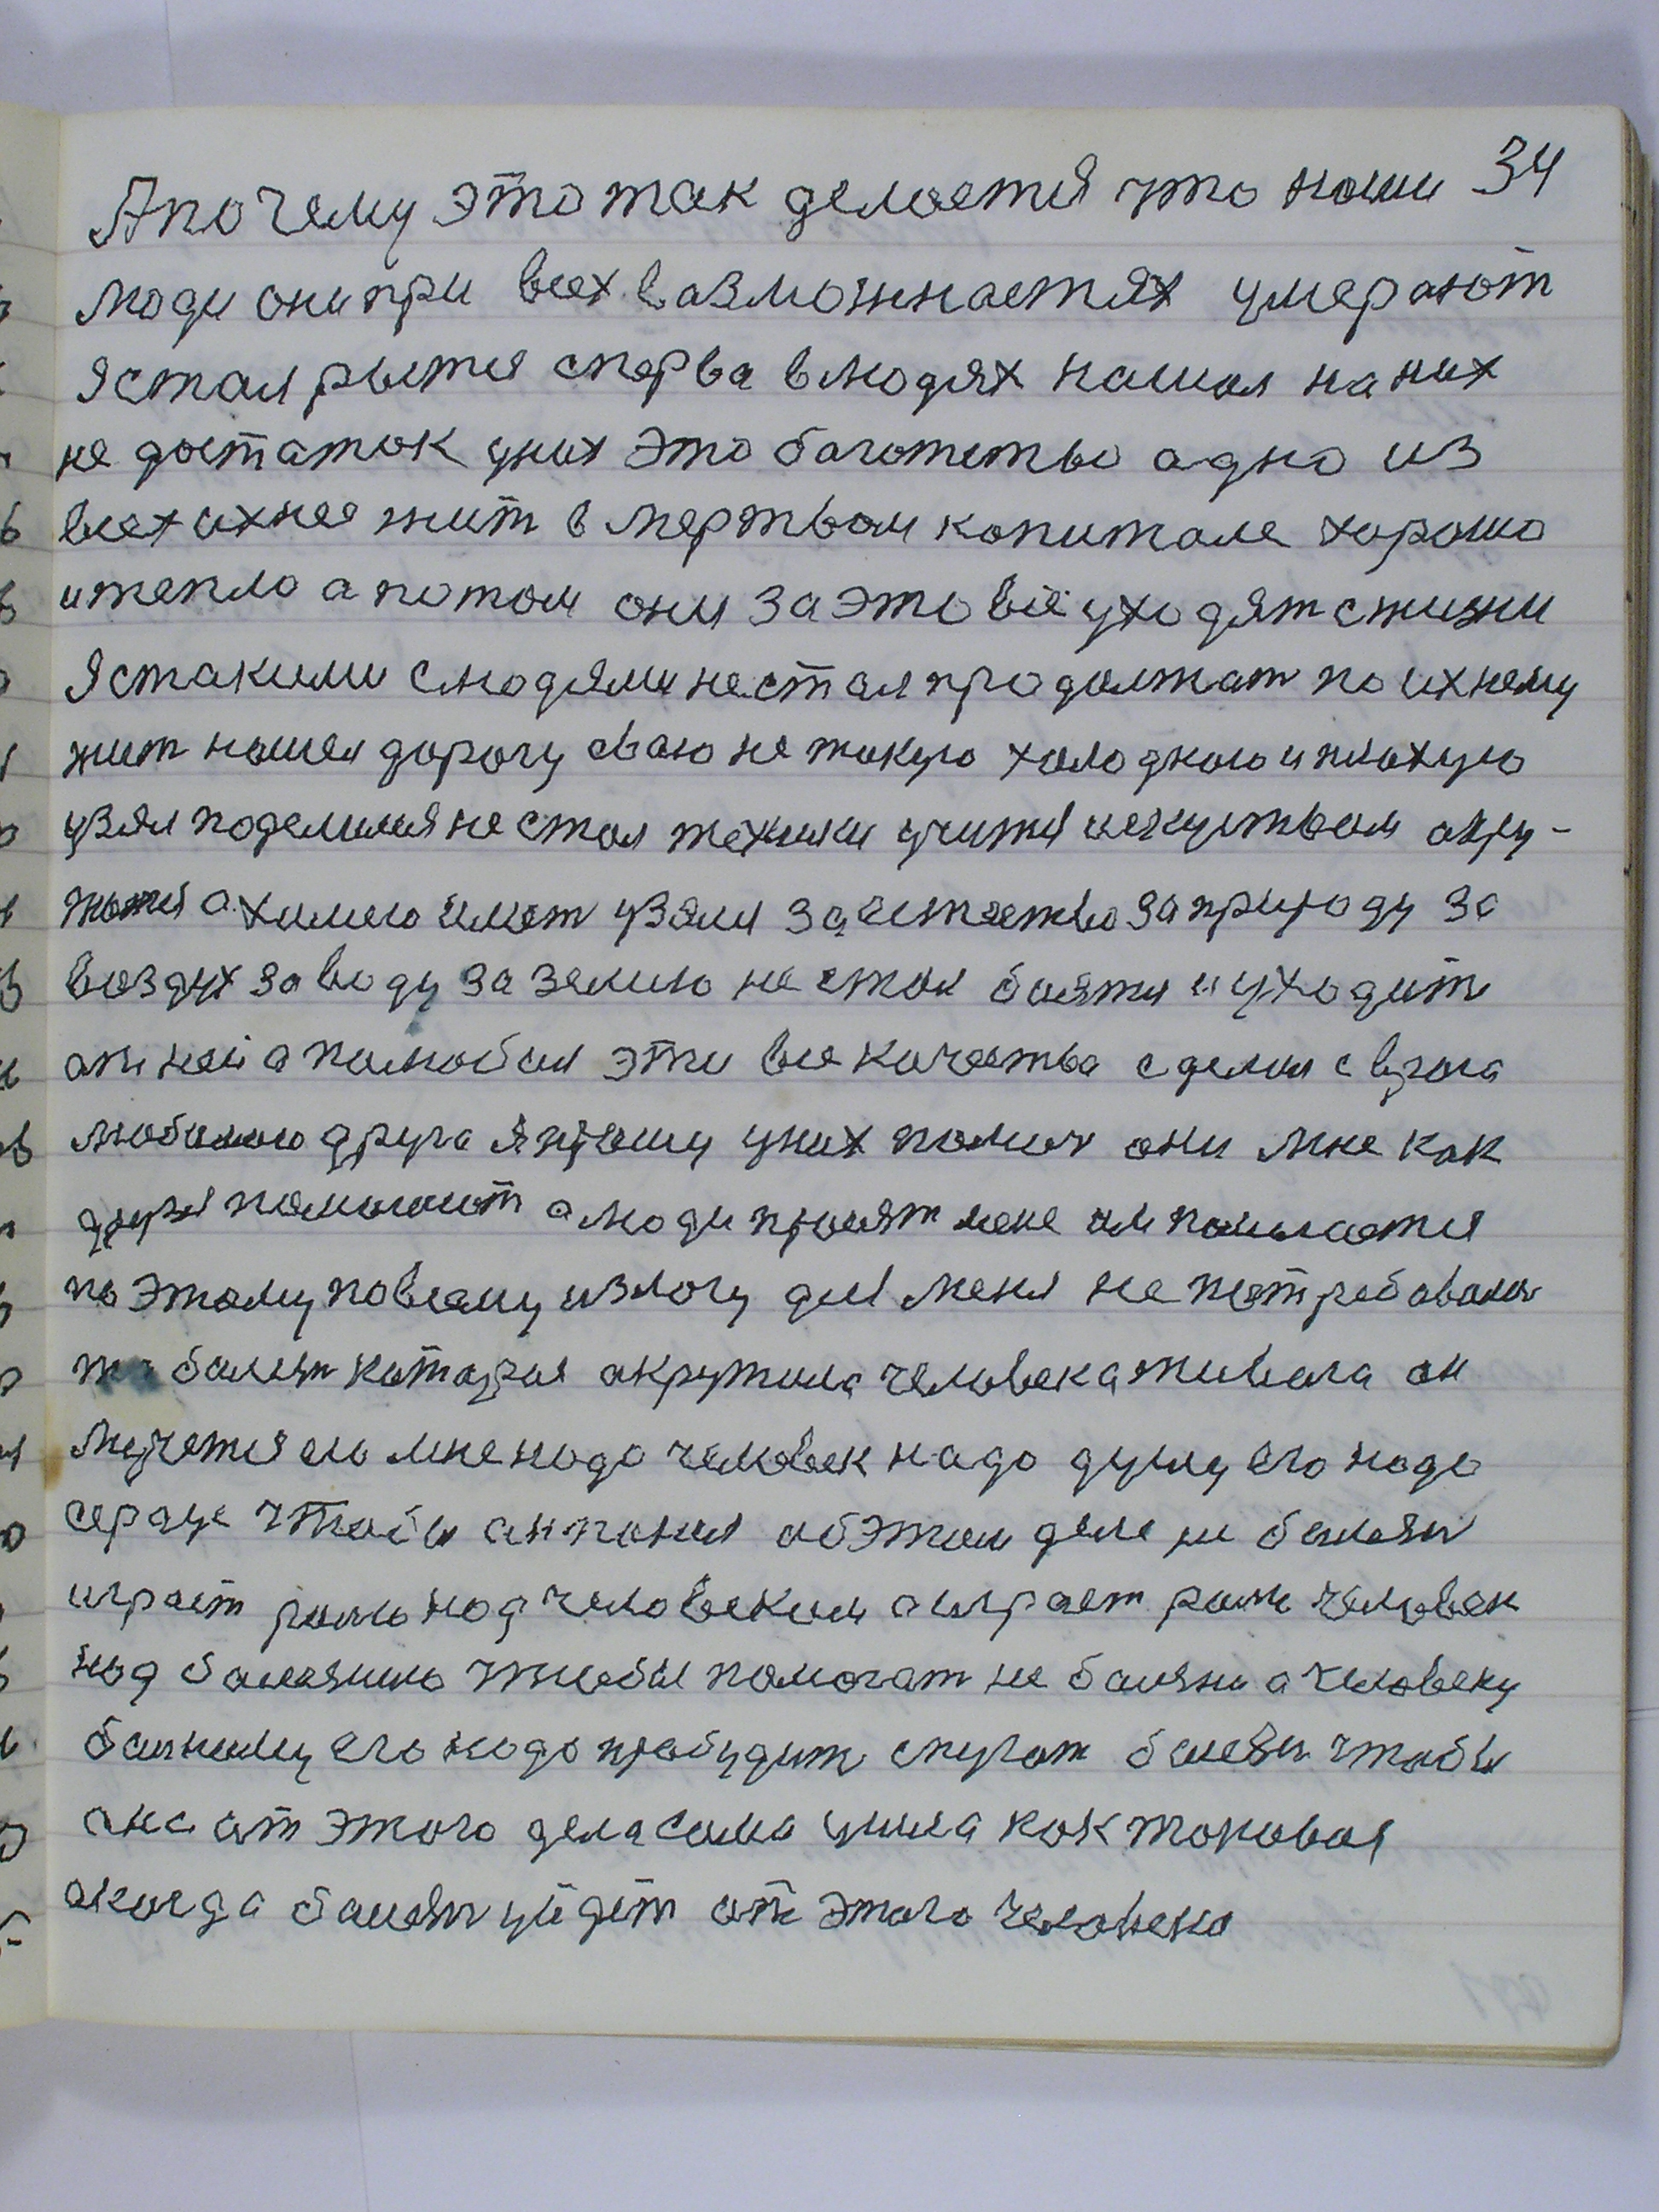 34
А почему это так делается что наши
люди они при всех вазможнастях умерают
я стал рытся сперва в людях нашол на них
не достаток у них это багатство адно из
всех ихнее жит в мертвом капитале хорошо
и тепло а потом они за это всё уходят с жизни
я с такими с людями не стал продолжат по ихнему
жит нашел дорогу сваю не такую халодною и плахую
узял поделился не стал техники учится исскуством акру-
жатся а химею имет узялся за естество за природу за
воздух за воду за землю не стал боятся и уходит
от ней а полюбил эти все качества сделал с врага
любимаго друга я прашу у них помоч они мне как
друзя помогают а люди просят мене им помагается
по этаму по всему излогу для меня не потребовалас
та болезн каторая акружила человека живога он
мучется ею мне надо человек надо душу его надо
серце чтобы он понял об этом деле не болезн
играет роль над человеком а играет роль человек
над болезнию чтобы помогат не болезни а человеку
больному его надо пробудит спугат болезн чтобы
она от этого дела сама ушла как таковая
а когда болезн уйдёт от этого человека